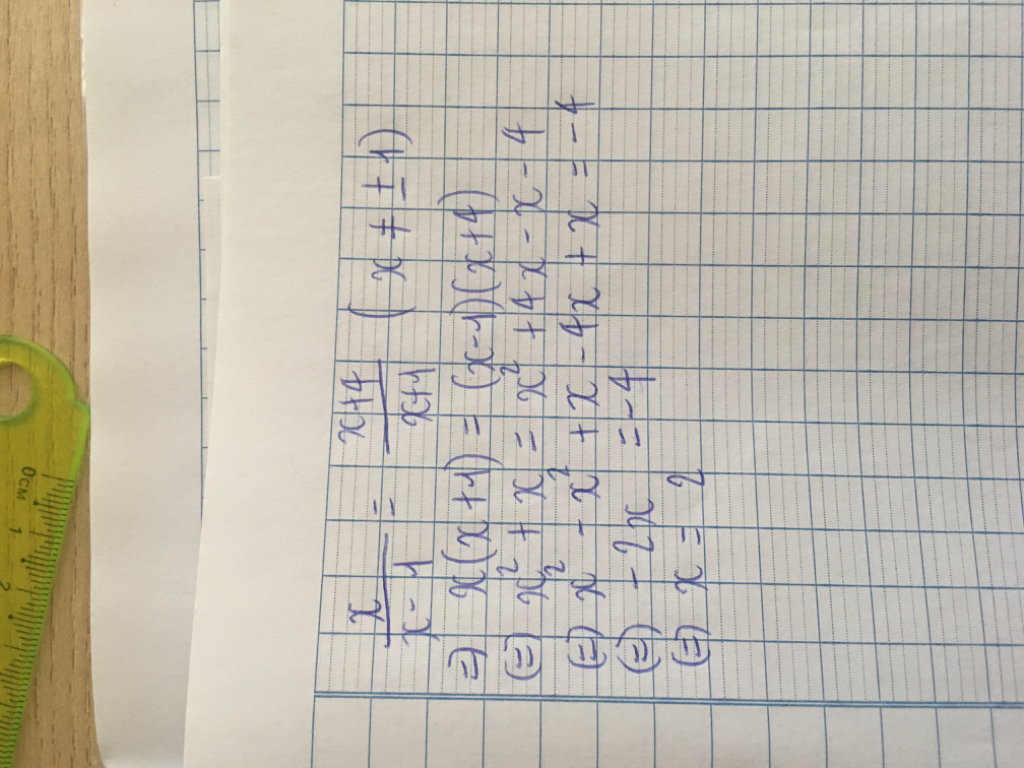 x/(x - 1) = (x+4)/(x+1) ( x ≠ ± 1)
=) x(x+1) = (x-1)(x+4)
(=) x² + x = x² + 4x - x - 4
(=) x² - x² + x - 4x + x = -4
(=) - 2x = -4
(=) x = 2
0cm 1 2